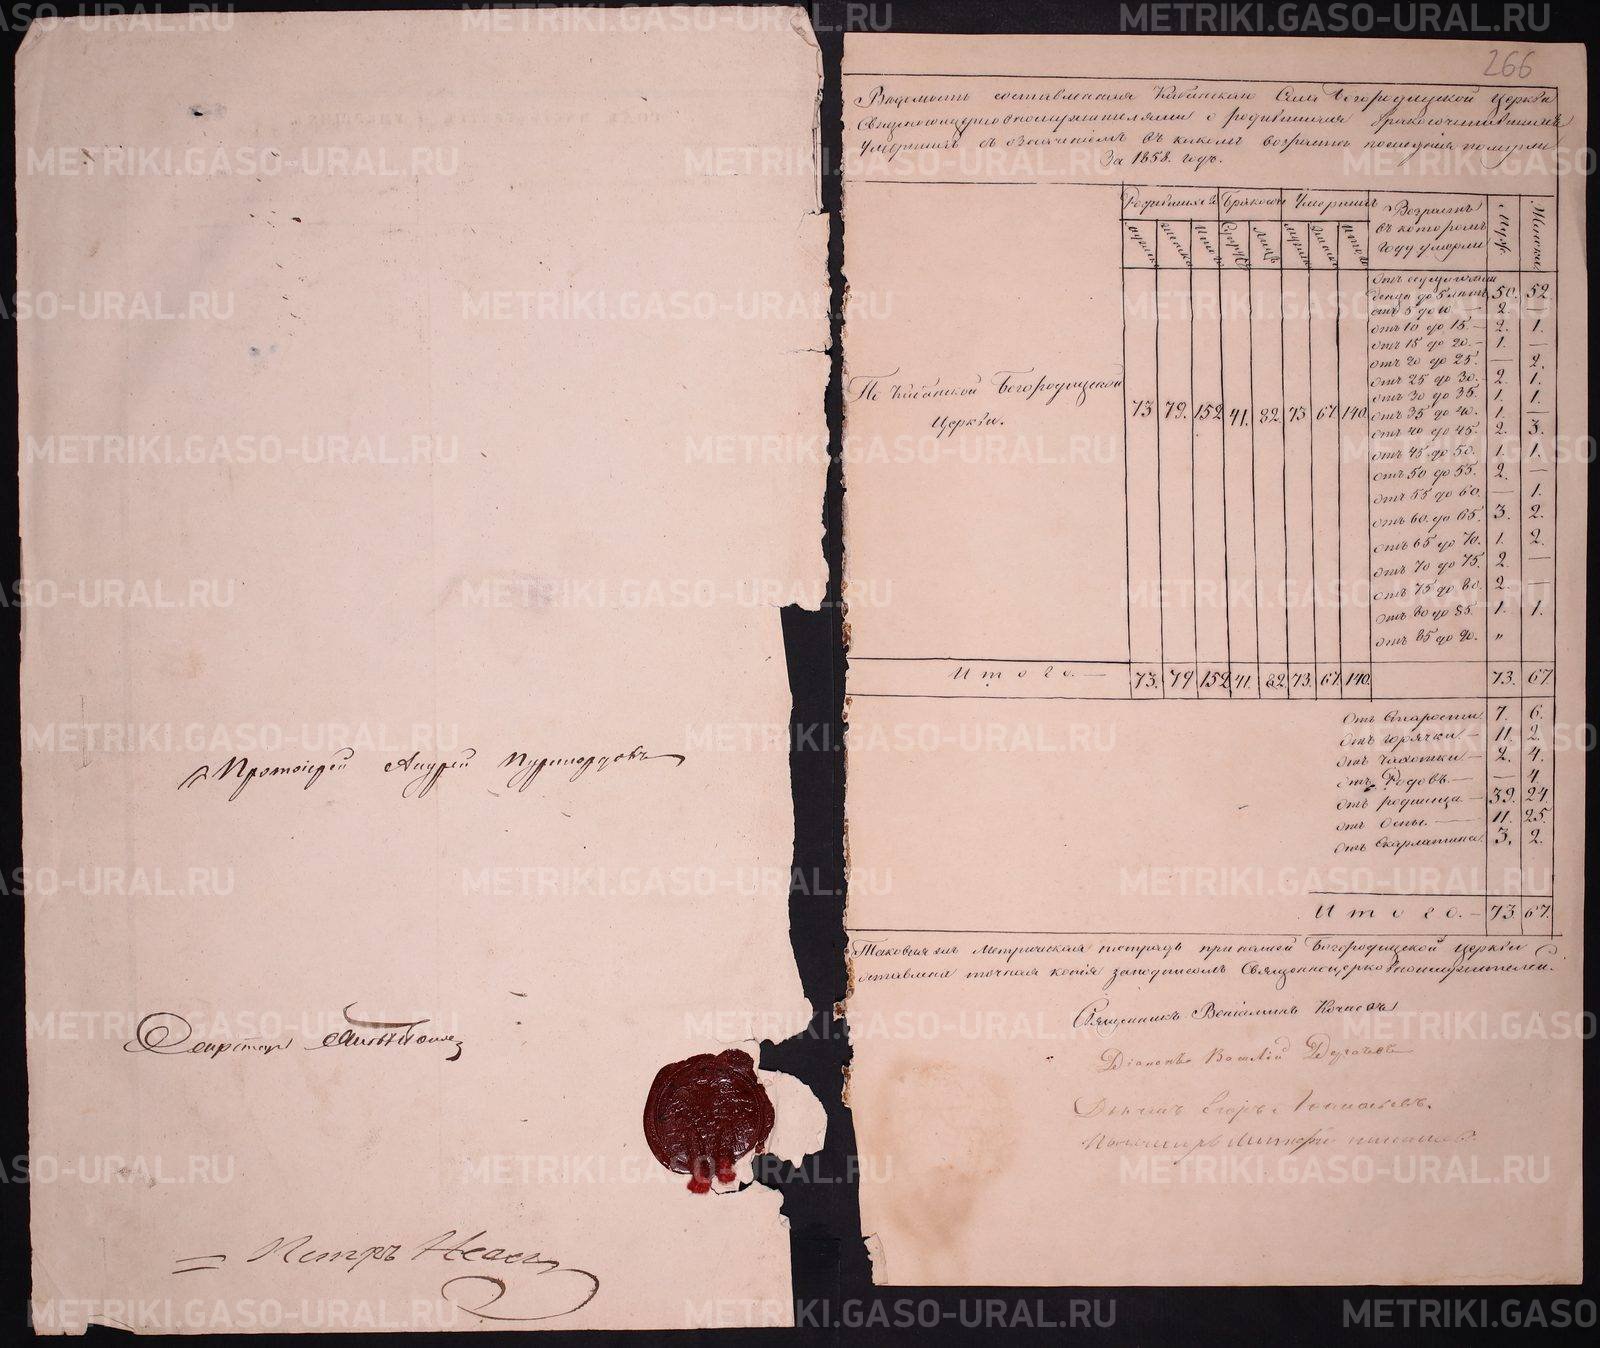 Протоіерей Андрей
Секретарь
Петръ
266
Ведомость составленная Кабанскаго Села Богородицкой Церкви
Священноцерковнослужителями о родившихся бракосочитавшихся
Умершихъ съ означеніемъ въ какомъ возрасте последнія померли
За 1858. годъ.
Родившихся Бракосоч Умершихъ Возрастъ въ которомъ году умерли Муж. Женска.
мужска женска Итого Супруж. Лицъ мужска женска Итого
По Кабанской Богородицкой
Церкви.
73 79. 152 41. 82. 73 67 140.
денца до 5 летъ 50. 52.
отъ 5 до 10 — 2. —
отъ 10 до 15. — 2. 1.
отъ 15 до 20. — 1. —
отъ 20 до 25. — 2.
отъ 25 до 30. 2. 1.
отъ 30 до 35. 1. 1.
отъ 35 до 40. 1. —
отъ 40 до 45. 2. 3.
отъ 45. до 50. 1. 1.
отъ 50 до 55. 2. —
отъ 55 до 60. — 1.
отъ 60. до 65. 3. 2.
отъ 65 до 70. 1. 2.
отъ 70 до 75. 2. —
отъ 75 до 80. 2. —
отъ 80 до 85. 1. 1.
отъ 85 до 90. "
Итого. — 73. 79 152 41. 82. 73. 67. 140. 73. 67
отъ Старости. 7. 6.
отъ горячки. — 11. 2.
отъ чахотки — 2. 4.
отъ Родовъ. — — 4.
отъ родимца. — 39. 24.
отъ Оспы. — 11. 25.
отъ Скарлатины. 3. 2.
Итого. — 73 67.
Таковыя съ Метрическая тетрадь при нашей Богородицкой церкви
оставлена точная копія за подписомъ Священноцерковнослужителей.
Священникъ Веніаминъ
Діаконъ Василій
Дьячекъ Егоръ
Пономарь